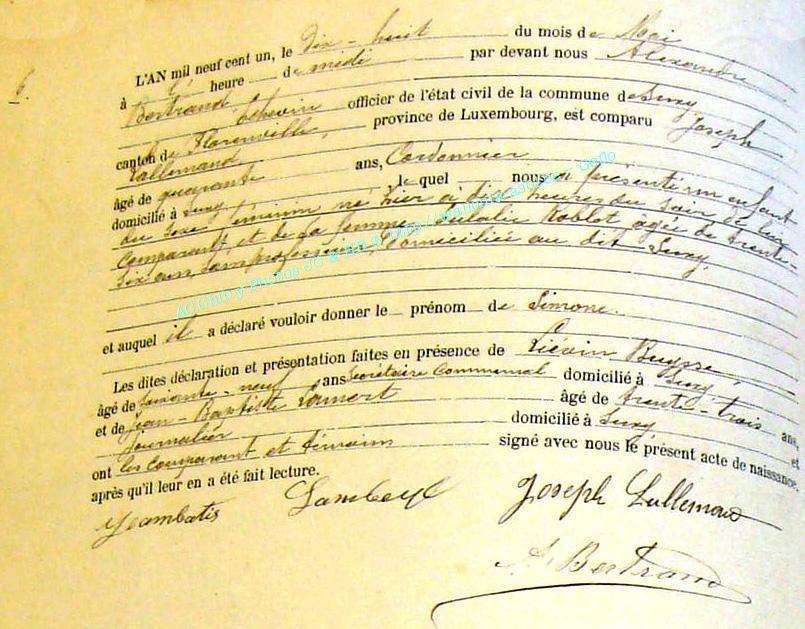 6.
L'AN mil neuf cent un, le dix-huit du mois de Mai
à heure de midi par devant nous Alexandre
Bertrand Echevin officier de l'état civil de la commune de Suxy
canton de Florenville, province de Luxembourg, est comparu Joseph
Lallemand
âgé de quarante ans, Cordonnier
domicilié à Suxy le quel nous a présenté un enfant
du sexe féminin né hier à dix heures du soir de lui
comparant et de sa femme Eulalie Noblet âgée de trente-
six ans, sans profession, domiciliée au dit Suxy,
et auquel il a déclaré vouloir donner le prénom de Simone.
Les dites déclaration et présentation faites en présence de Liévin Buysse,
âgé de soixante-neuf ans Secrétaire Communal domicilié à Suxy
et de Jean-Baptiste Lambert âgé de trente-trois ans,
Journalier domicilié à Suxy et
ont les comparant et témoins signé avec nous le présent acte de naissance,
après qu'il leur en a été fait lecture.
Jeambatis Lambert Joseph Lallemand
A. Bertrand
AC Chiny Photos JC &